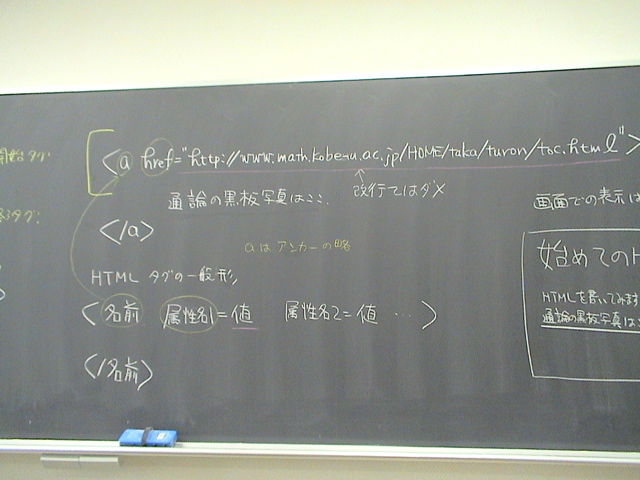 開始タグ
<a href="http://www.math.kobe-u.ac.jp/HOME/taka/turon/toc.html">
通論の黒板写真はここ.
改行してはダメ
</a>
aは アンカーの略
HTML タグの一般形,
<名前 属性名1=値 属性名2=値 ...>
</名前>
画面での表示は
始めてのH
HTMLを書いてみます
通論の黒板写真は